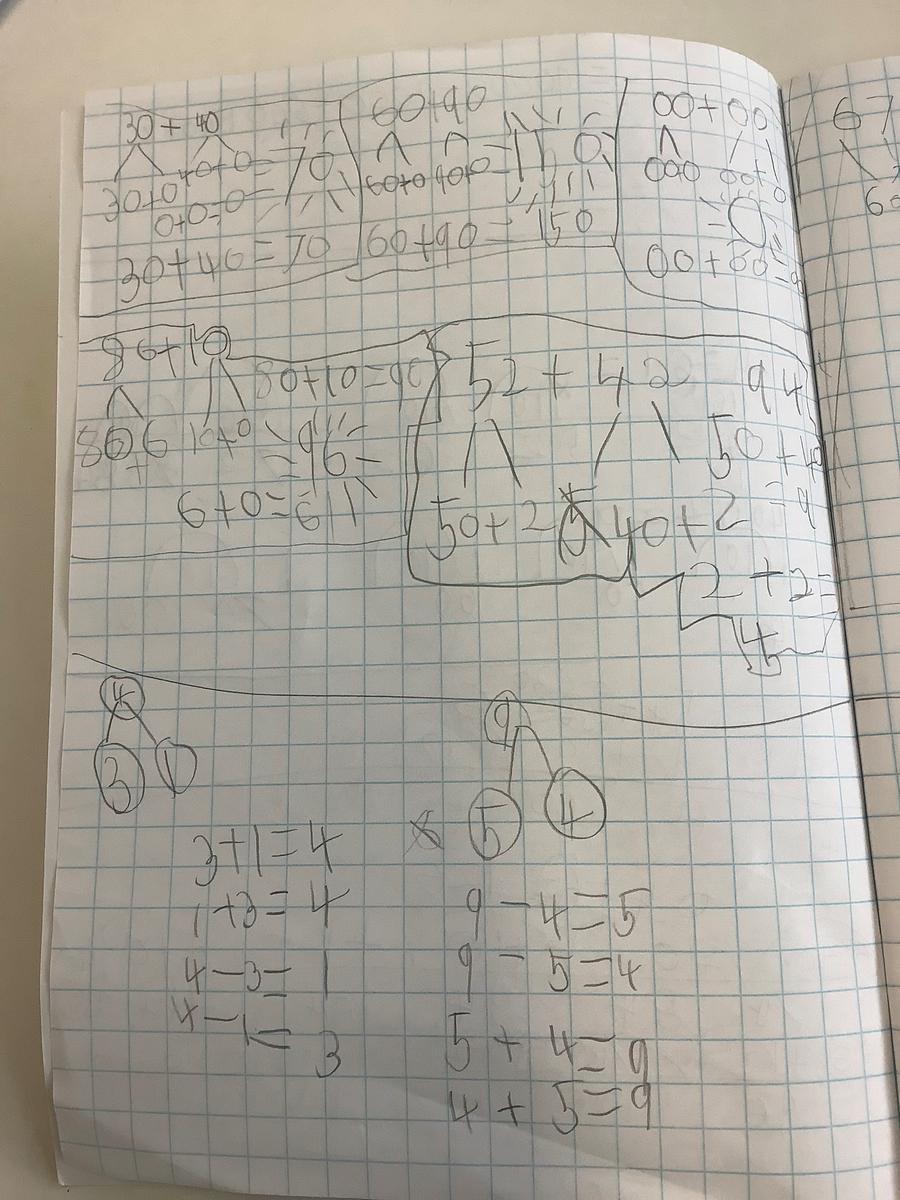 30 + 40
30+0 40+0=70
0+0=0=
30+40=70
60+90
60+0 90+0=
60+90=150
00+00
00+0
=0
00+00=0
86+10
80+10=90
80+6 10+0
=96
6+0=6
52 + 42 94
50+2 40+2
50+40
=9
2+2=
4
4
3 1
3+1=4
1+3=4
4-3=1
4-1=3
9
5 4
9-4=5
9-5=4
5+4=9
4+5=9
67
60